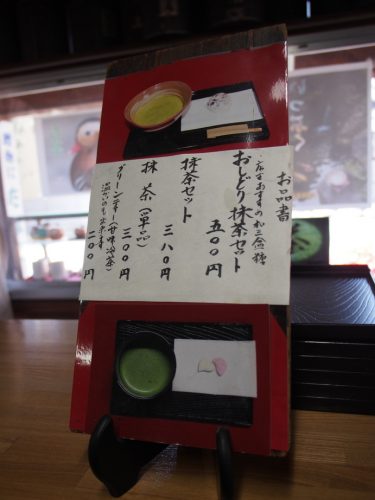 お品書
・店主おすすめの和三盆糖
おしどり抹茶セット
五〇〇円
抹茶セット
三八〇円
抹茶(単品)
三〇〇円
グリーンティー(甘味冷茶)
温かいのも出来ます
二〇〇円